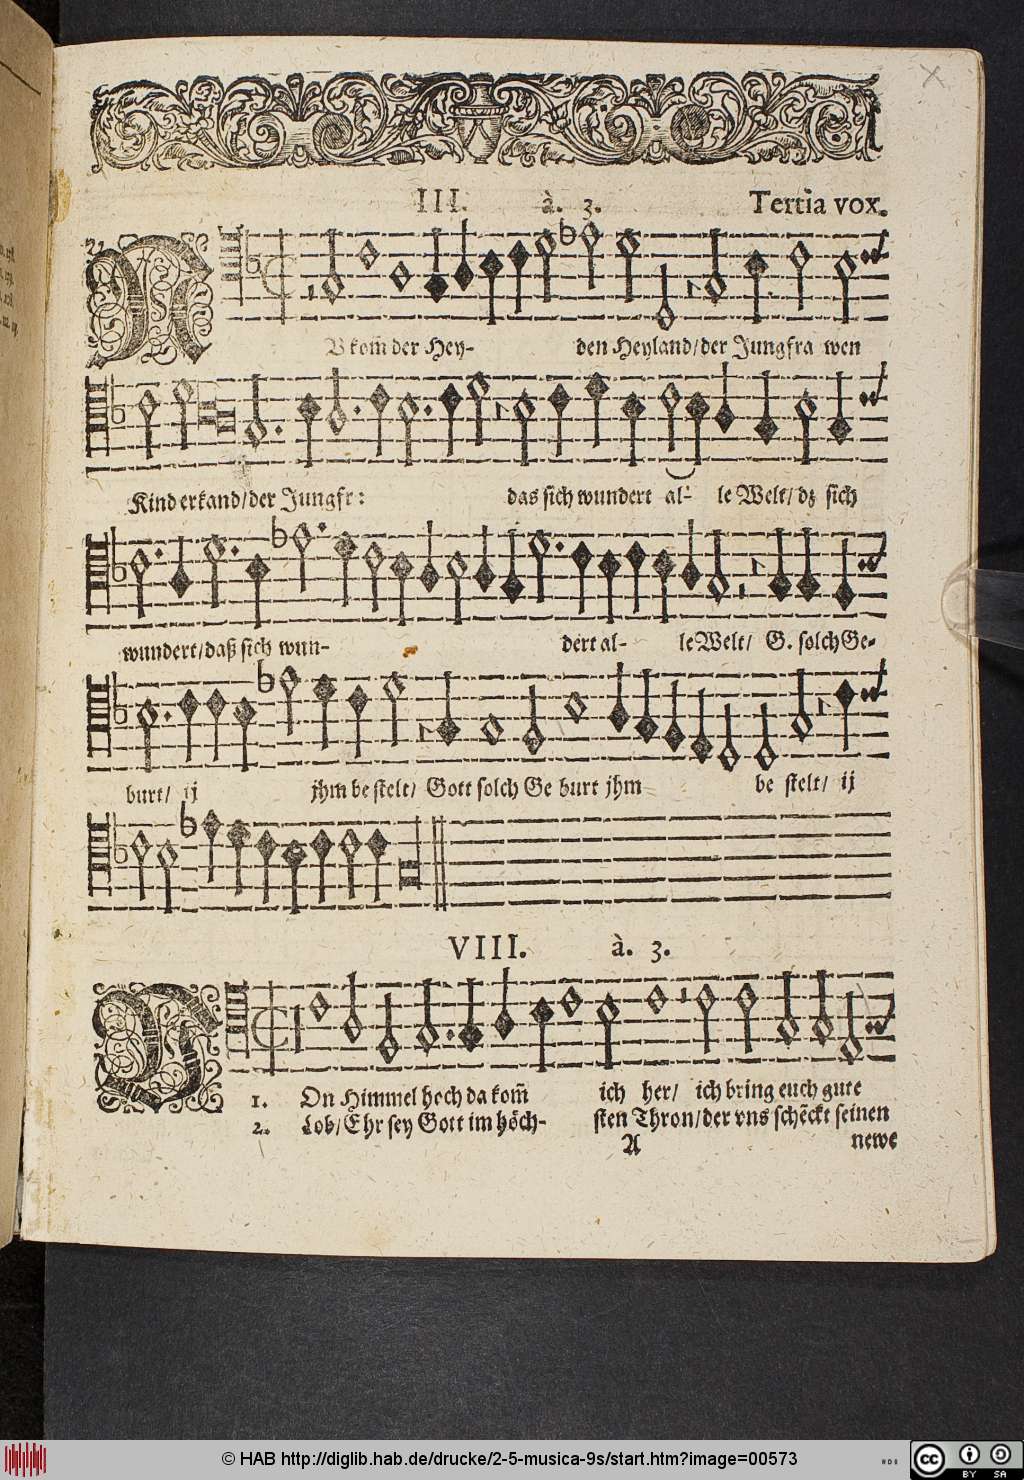 III. à. 3. Tertia vox.
NVkom̃ der Hey- den Heyland/der Jungfra wen
Kind erkand/der Jungfr: das sich wundert al- le Welt/ dʒ sich
wundert/daß sich wun- dert al- le Welt/ G. solch Ge-
burt/ ij jhm be stelt/ Gott solch Ge burt jhm be stelt/ ij
VIII. à. 3.
1. VOn Himmel hoch da kom̃ ich her/ ich bring euch gute
2. Lob/Ehr sey Gott im höch- sten Thron/der vns schẽckt seinen
A newe
© HAB http://diglib.hab.de/drucke/2-5-musica-9s/start.htm?image=00573
cc BY SA